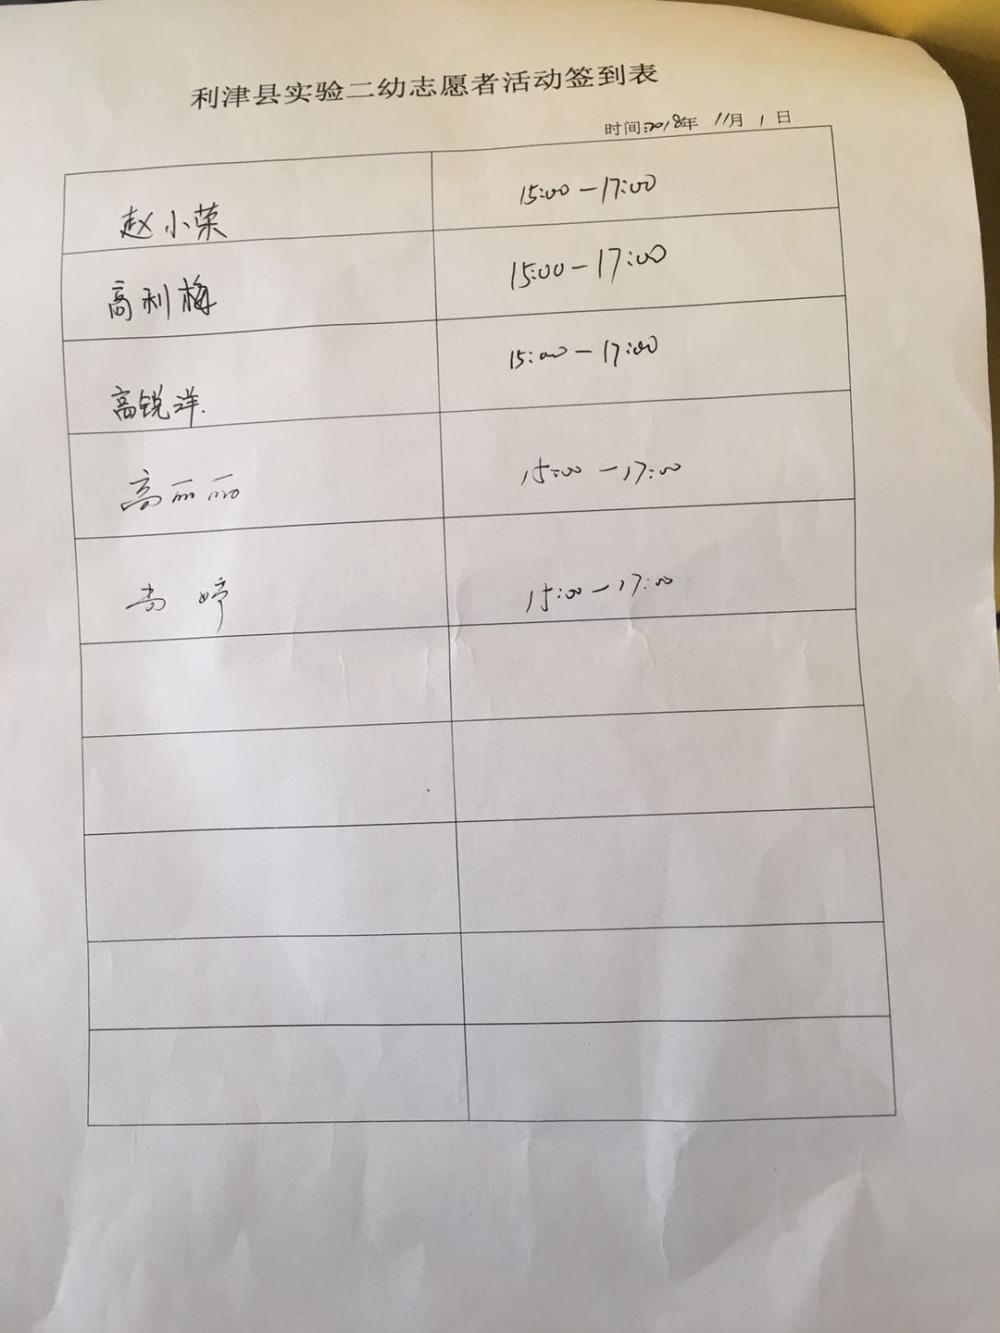 利津县实验二幼志愿者活动签到表
时间:2018年 11月 1日
赵小荣 15:00-17:00
高利梅 15:00-17:00
高锐洋. 15:00-17:00
高丽丽 15:00-17:00
尚婷 15:00-17:00